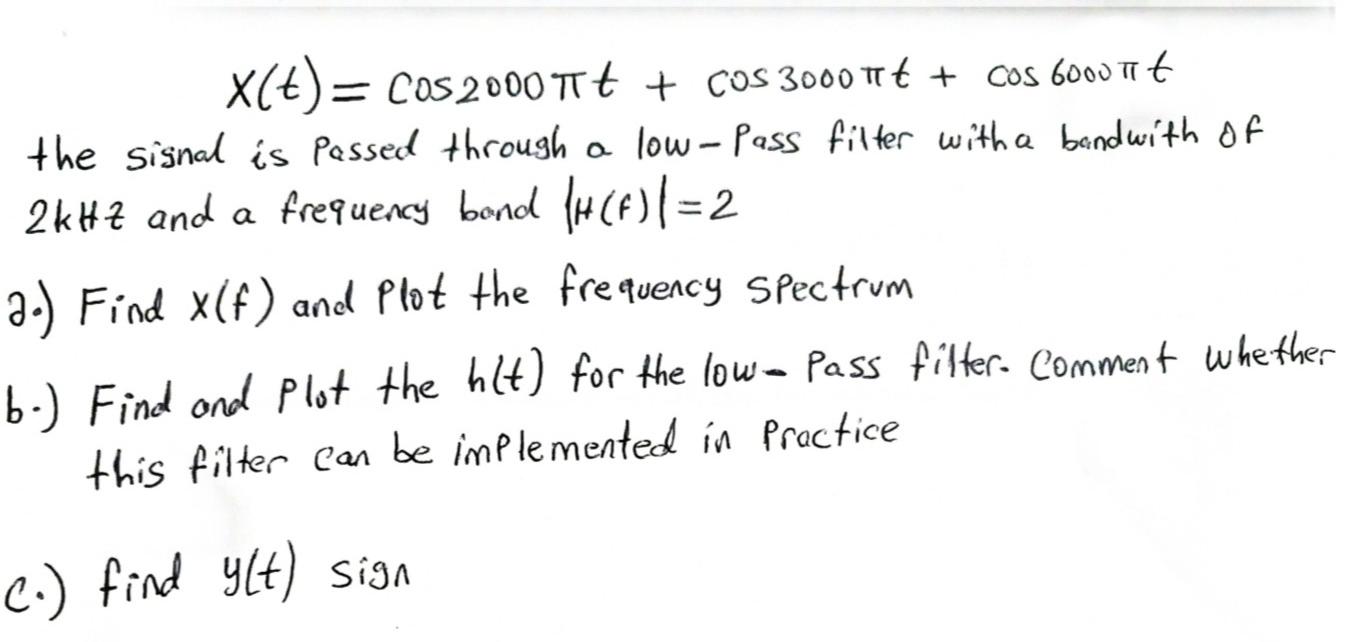 X(t) = cos2000πt + cos 3000πt + cos 6000πt
the signal is Passed through a low-Pass filter with a bandwith of
2kHz and a frequency band |H(f)|=2
a.) Find X(f) and Plot the frequency spectrum
b.) Find and Plot the h(t) for the low-Pass filter. Comment whether
this filter can be implemented in Practice
c.) find y(t) sign